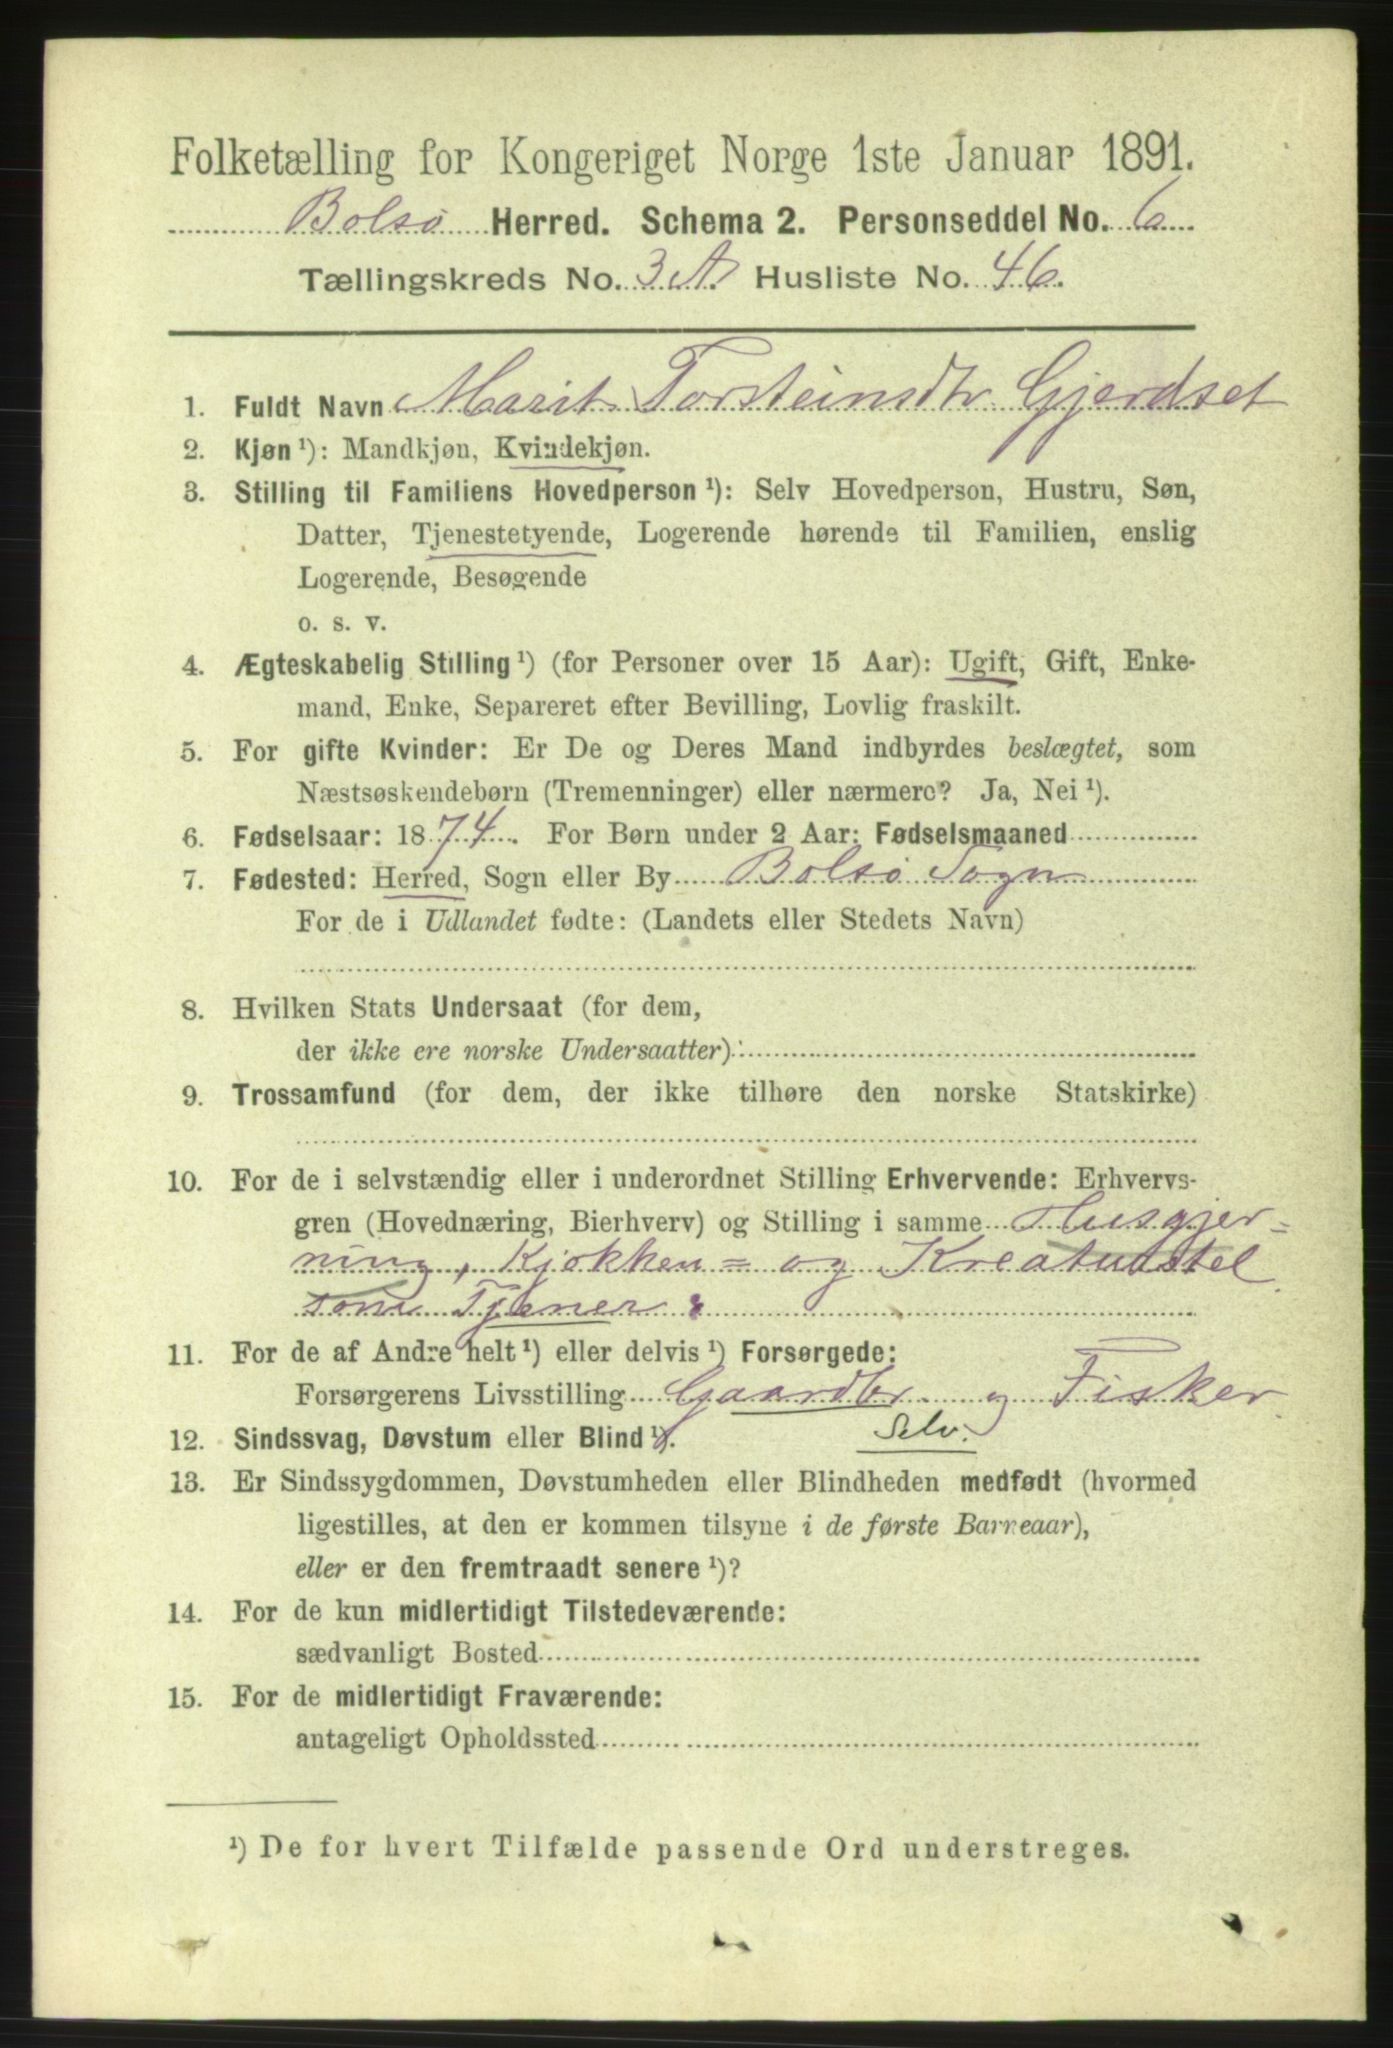 Folketælling for Kongeriget Norge 1ste Januar 1891.
Bolsø Herred. Schema 2. Personseddel No. 6
Tællingskreds No. 3 A. Husliste No. 46.
1. Fuldt Navn Marit Torsteinsdtr Gjerdset
2. Kjøn ¹): Mandkjøn, Kvindekjøn.
3. Stilling til Familiens Hovedperson ¹): Selv Hovedperson, Hustru, Søn,
Datter, Tjenestetyende, Logerende hørende til Familien, enslig
Logerende, Besøgende
o. s. v.
4. Ægteskabelig Stilling ¹) (for Personer over 15 Aar): Ugift, Gift, Enke-
mand, Enke, Separeret efter Bevilling, Lovlig fraskilt.
5. For gifte Kvinder: Er De og Deres Mand indbyrdes beslægtet, som
Næstsøskendebørn (Tremenninger) eller nærmere? Ja, Nei ¹).
6. Fødselsaar: 1874. For Børn under 2 Aar: Fødselsmaaned
7. Fødested: Herred, Sogn eller By Bolsø Sogn
For de i Udlandet fødte: (Landets eller Stedets Navn)
8. Hvilken Stats Undersaat (for dem,
der ikke ere norske Undersaatter):
9. Trossamfund (for dem, der ikke tilhøre den norske Statskirke)
10. For de i selvstændig eller i underordnet Stilling Erhvervende: Erhvervs-
gren (Hovednæring, Bierhverv) og Stilling i samme Husgjer=
ning, Kjøkken= og Kreaturstel
som Tjener
11. For de af Andre helt ¹) eller delvis ¹) Forsørgede:
Forsørgerens Livsstilling Gaardbr. og Fisker.
12. Sindssvag, Døvstum eller Blind ¹). Selv.
13. Er Sindssygdommen, Døvstumheden eller Blindheden medfødt (hvormed
ligestilles, at den er kommen tilsyne i de første Barneaar),
eller er den fremtraadt senere ¹)?
14. For de kun midlertidigt Tilstedeværende:
sædvanligt Bosted
15. For de midlertidigt Fraværende:
antageligt Opholdssted
¹) De for hvert Tilfælde passende Ord understreges.